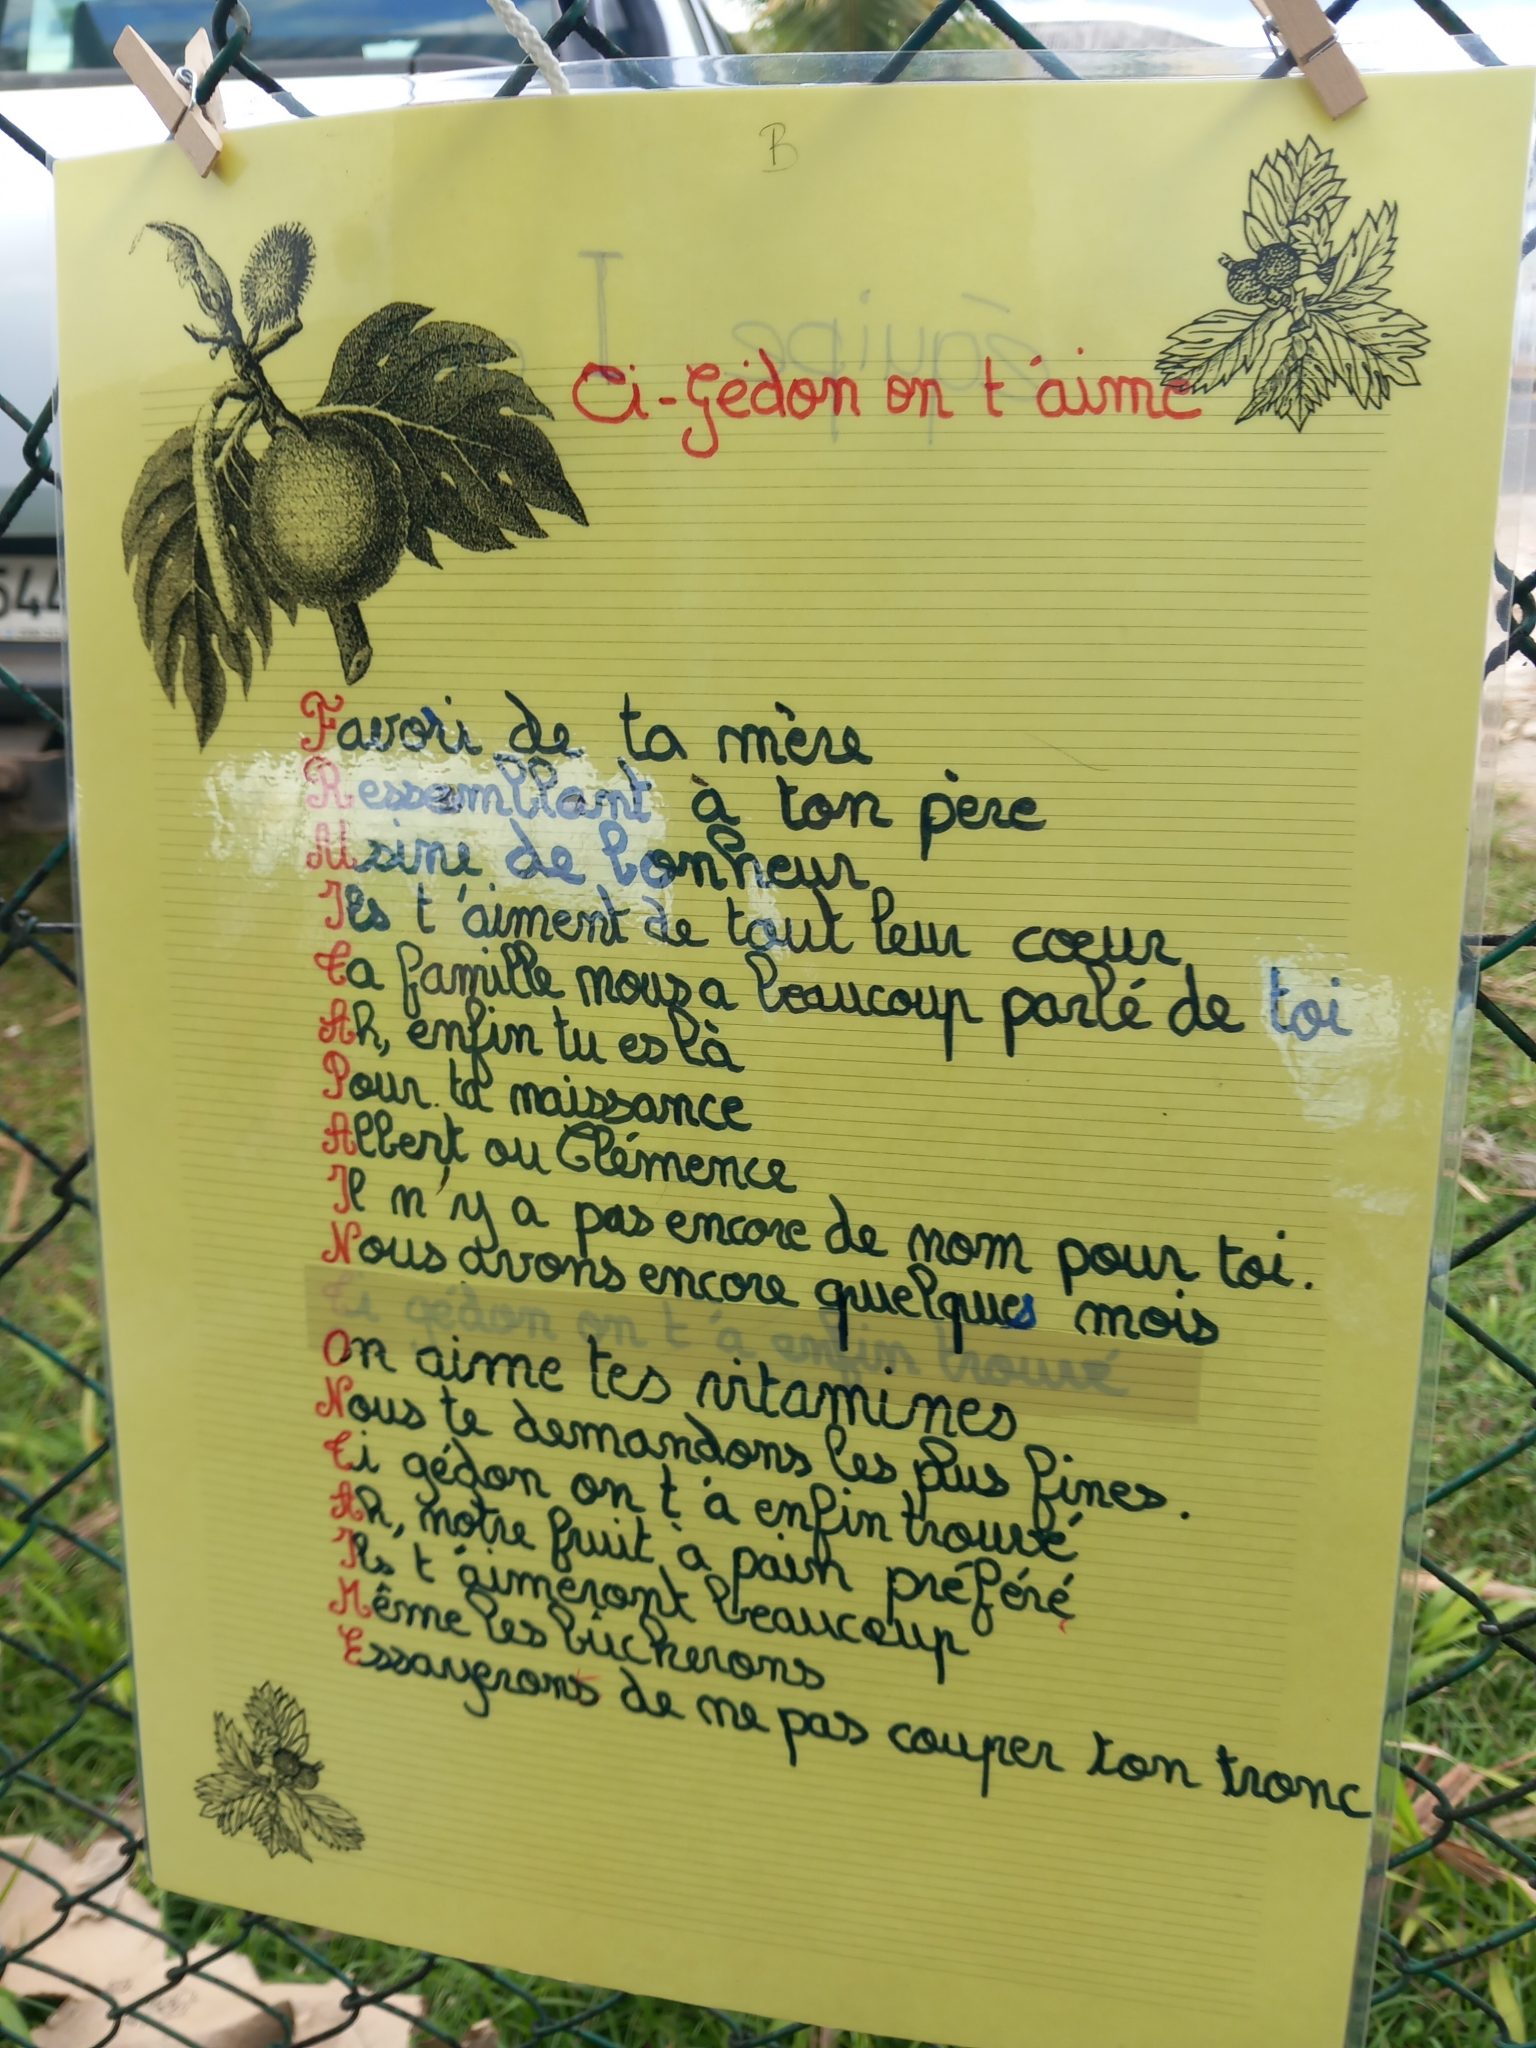 B
équipe I
Ti-Gédon on t'aime
Favori de ta mère
Ressemblant à ton père
Usine de bonheur
Ils t'aiment de tout leur cœur
Ta famille nous a beaucoup parlé de toi
Ah, enfin tu es là
Pour ta naissance
Albert ou Clémence
Il n'y a pas encore de nom pour toi.
Nous avons encore quelques mois
Ti gédon on t'a enfin trouvé
On aime tes vitamines
Nous te demandons les plus fines.
Ti gédon on t'a enfin trouvé
Ah, notre fruit à pain préféré
Ils t'aimeront beaucoup
Même les bûcherons
Essayerons de ne pas couper ton tronc